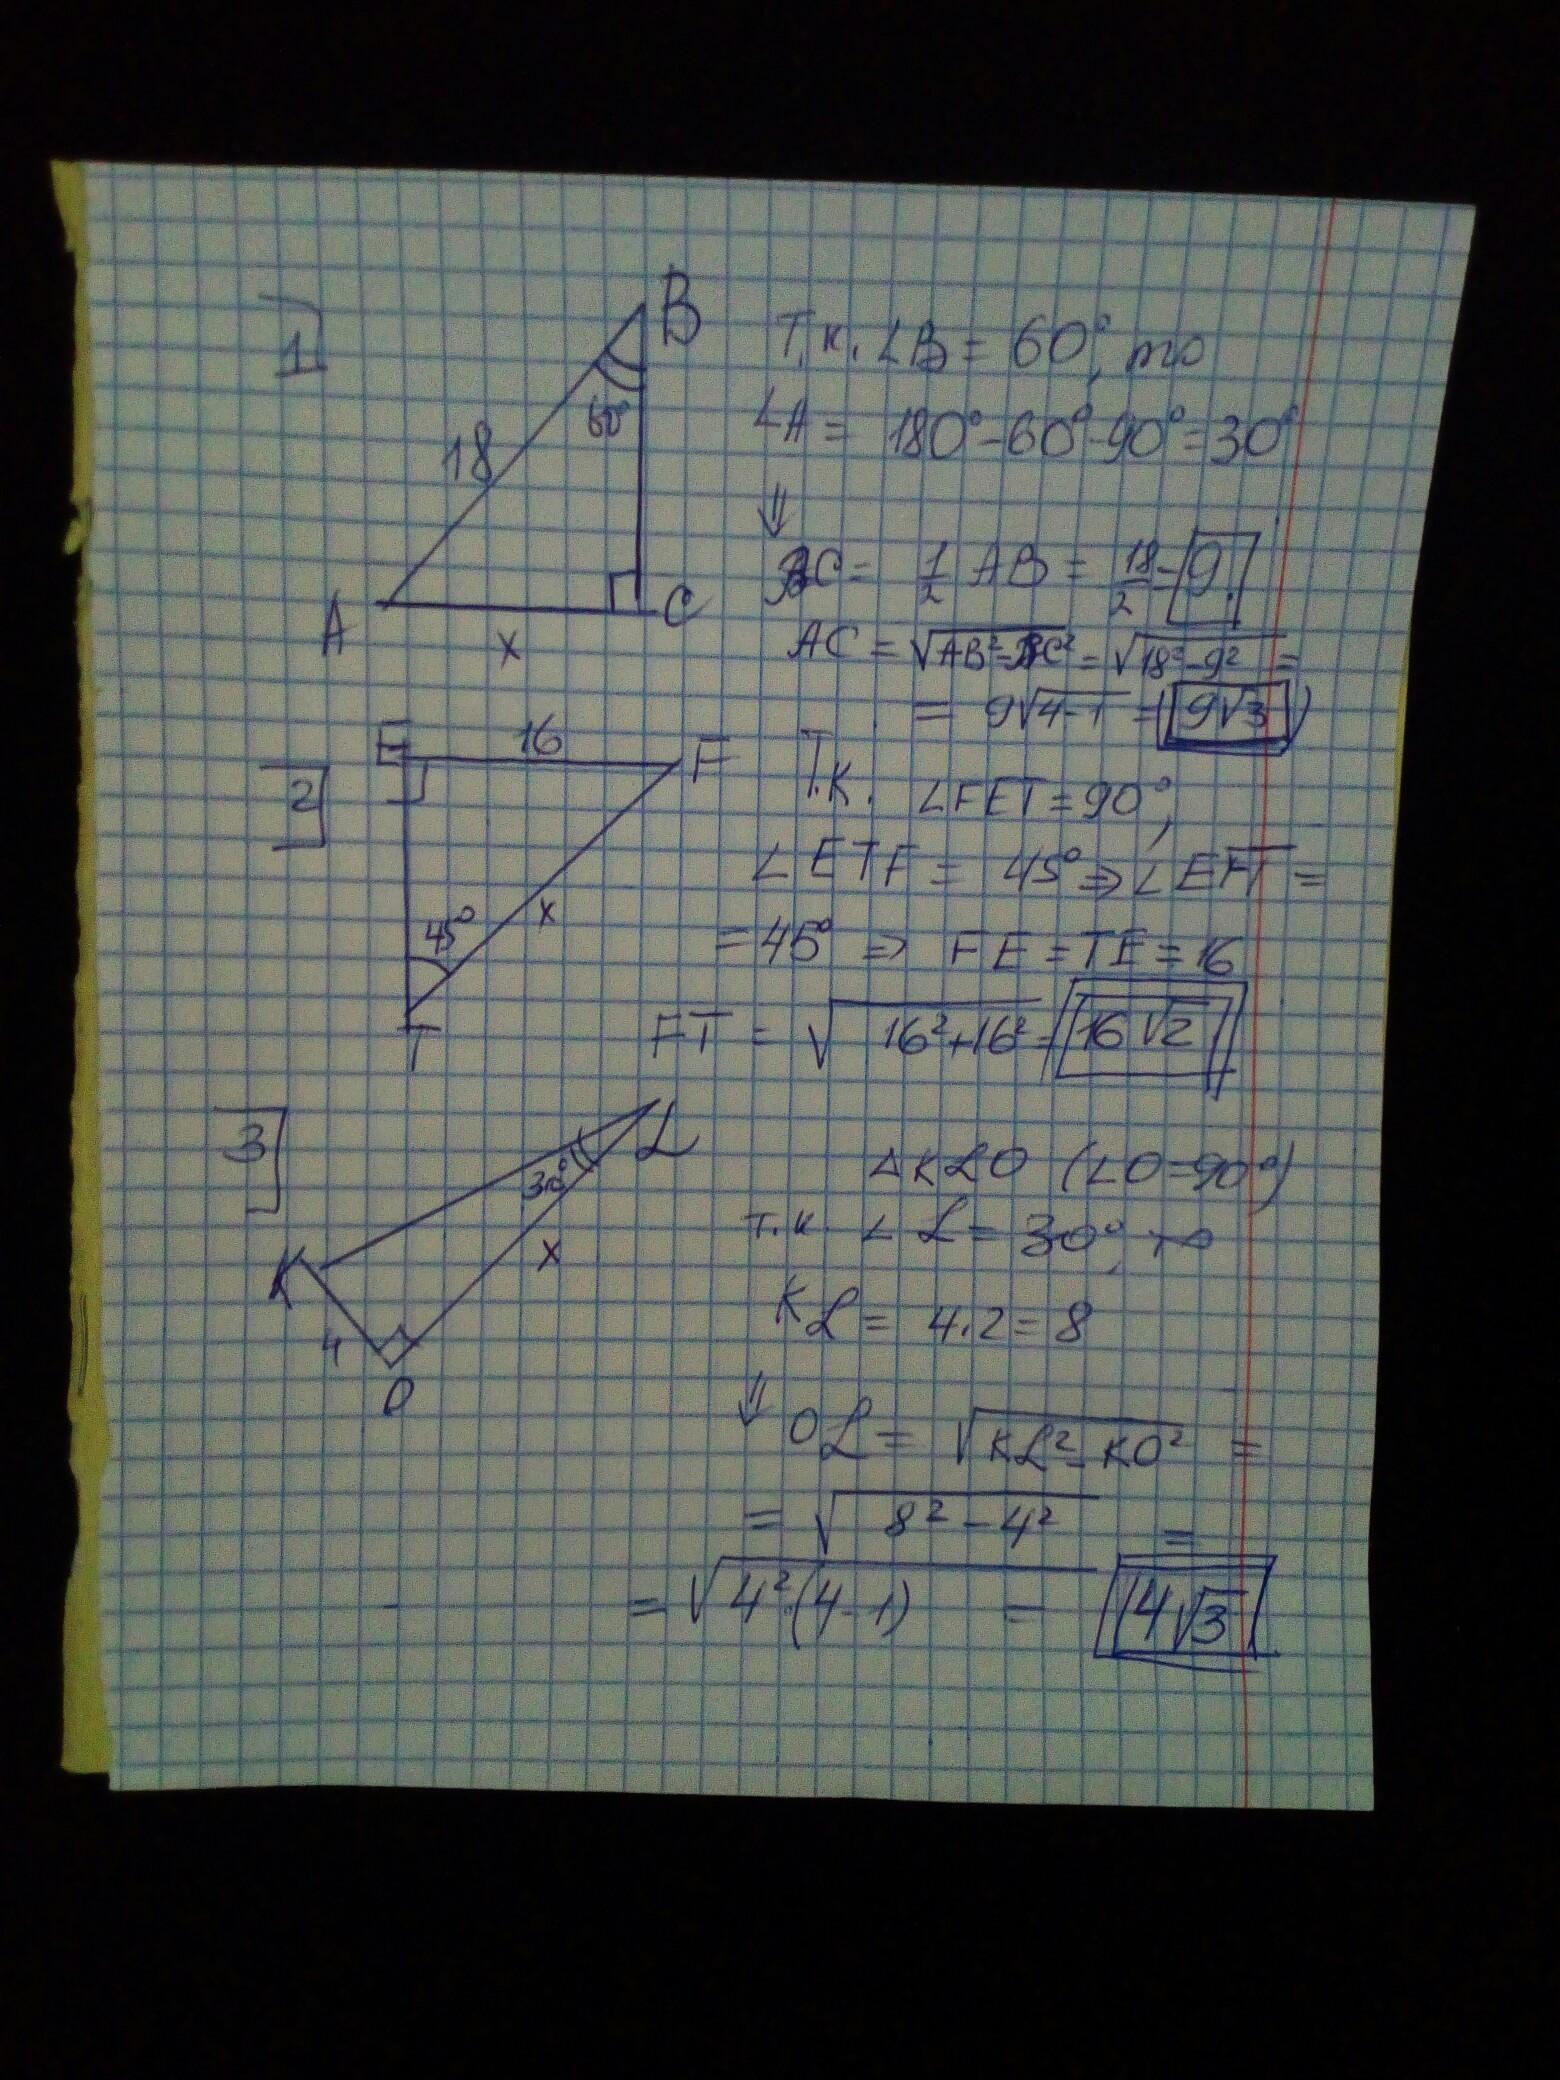 1
B
18
60°
A
x
C
Т.к. ∠B = 60°, то
∠A = 180°-60°-90°=30°
⇓
BC = 1/2 AB = 18/2 = 9
AC = √(AB²-BC²) = √(18²-9²) =
= 9√(4-1) = (9√3)
2
E
16
F
45°
x
T
Т.к. ∠FET=90°,
∠ETF = 45° ⇒ ∠EFT =
= 45° ⇒ FE = TE = 16
FT = √(16²+16²) = 16√2
3
L
30°
K
x
4
O
△KLO (∠O=90°)
т.к ∠L = 30°, то
KL = 4.2 = 8
⇓ OL = √(KL²-KO²) =
= √(8²-4²) =
= √(4²·(4-1)) = 4√3